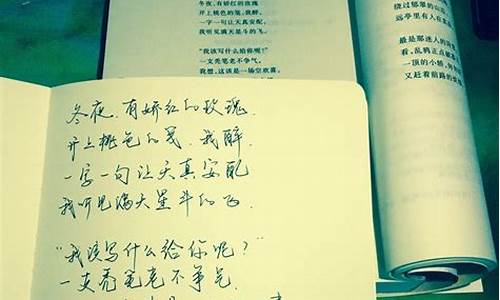 冬夜,有娇红的玫瑰
开上桃色的笺,我醉,
一字一句让天真安配,
我听见满天星斗的飞。
"我该写什么给你呢?"
一支秃笔老不争气,
我想,这该是一场空欢喜。
绕过郁翠的山
远亭里有人在
最是那迷人的
看,乱鸦正点破
一顶的小轿,
又赶着前路的
冬夜,有娇红的玫瑰,
开上桃色的笺,我醉,
一字一句让天真安配
我听见满天星斗的飞.
"我该写什么给你呢?"
一支秃笔老不争气,